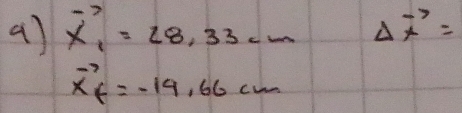 a) x⃗ᵢ = 28,33 cm Δx⃗ =
x⃗f = -19,66 cm